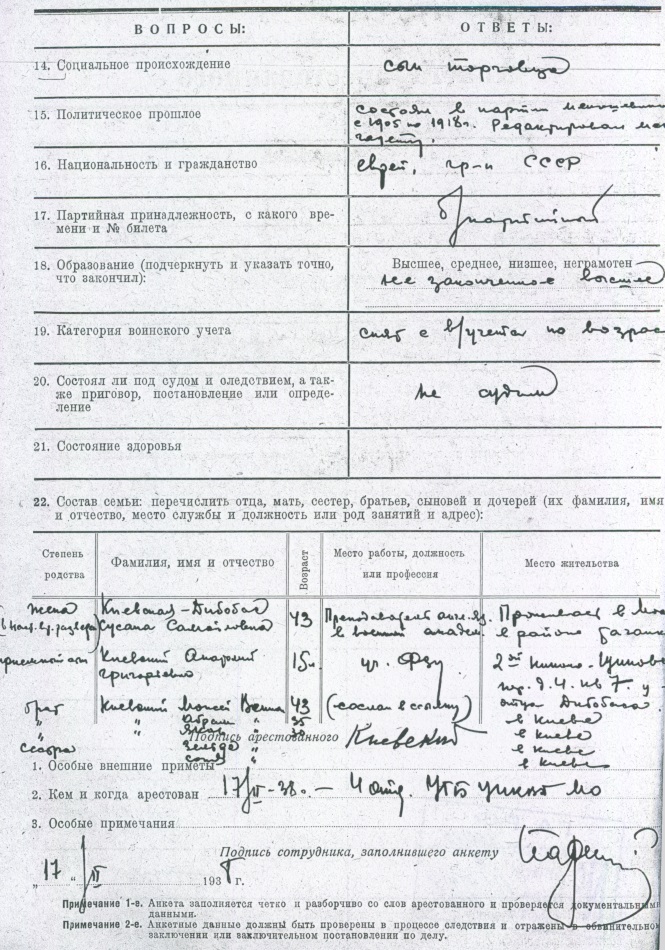 ВОПРОСЫ:
ОТВЕТЫ:
14. Социальное происхождение
сын торговца
15. Политическое прошлое
состоял в партии
с 1905 по 1918г. Редактировал
газету.
16. Национальность и гражданство
еврей, гр-н СССР
17. Партийная принадлежность, с какого вре-
мени и № билета
б/партийный
18. Образование (подчеркнуть и указать точно,
что закончил):
Высшее, среднее, низшее, неграмотен
не законченное высшее
19. Категория воинского учета
снят с в/учета по
20. Состоял ли под судом и следствием, а так-
же приговор, постановление или опреде-
ление
не судим
21. Состояние здоровья
22. Состав семьи: перечислить отца, мать, сестер, братьев, сыновей и дочерей (их фамилия, имя
и отчество, место службы и должность или род занятий и адрес):
Степень
родства
Фамилия, имя и отчество
Возраст
Место работы, должность
или профессия
Место жительства
жена
Киевская-
43
Преподаватель
Проживает в
Сусана Самойловна
в военной академ.
в районе
Киевский Анатолий
15 л.
уч. Фзу
2ой
Григорьевич
д. 4. кв 7. у
брат
Киевский Моисей
43
(сослан в ссылку)
" " Абрам "
35
в Киеве
"
30
в Киеве
Сестра
"
в Киеве
"
в Киеве
Подпись арестованного Киевский
1. Особые внешние приметы
2. Кем и когда арестован 17/II-38г. — 4 отд. УГБ УНКВД МО
3. Особые примечания
Подпись сотрудника, заполнившего анкету
„17" II 1938 г.
Примечание 1-е. Анкета заполняется четко и разборчиво со слов арестованного и проверяется документальными
данными.
Примечание 2-е. Анкетные данные должны быть проверены в процессе следствия и отражены в обвинительно
заключении или заключительном постановлении по делу.